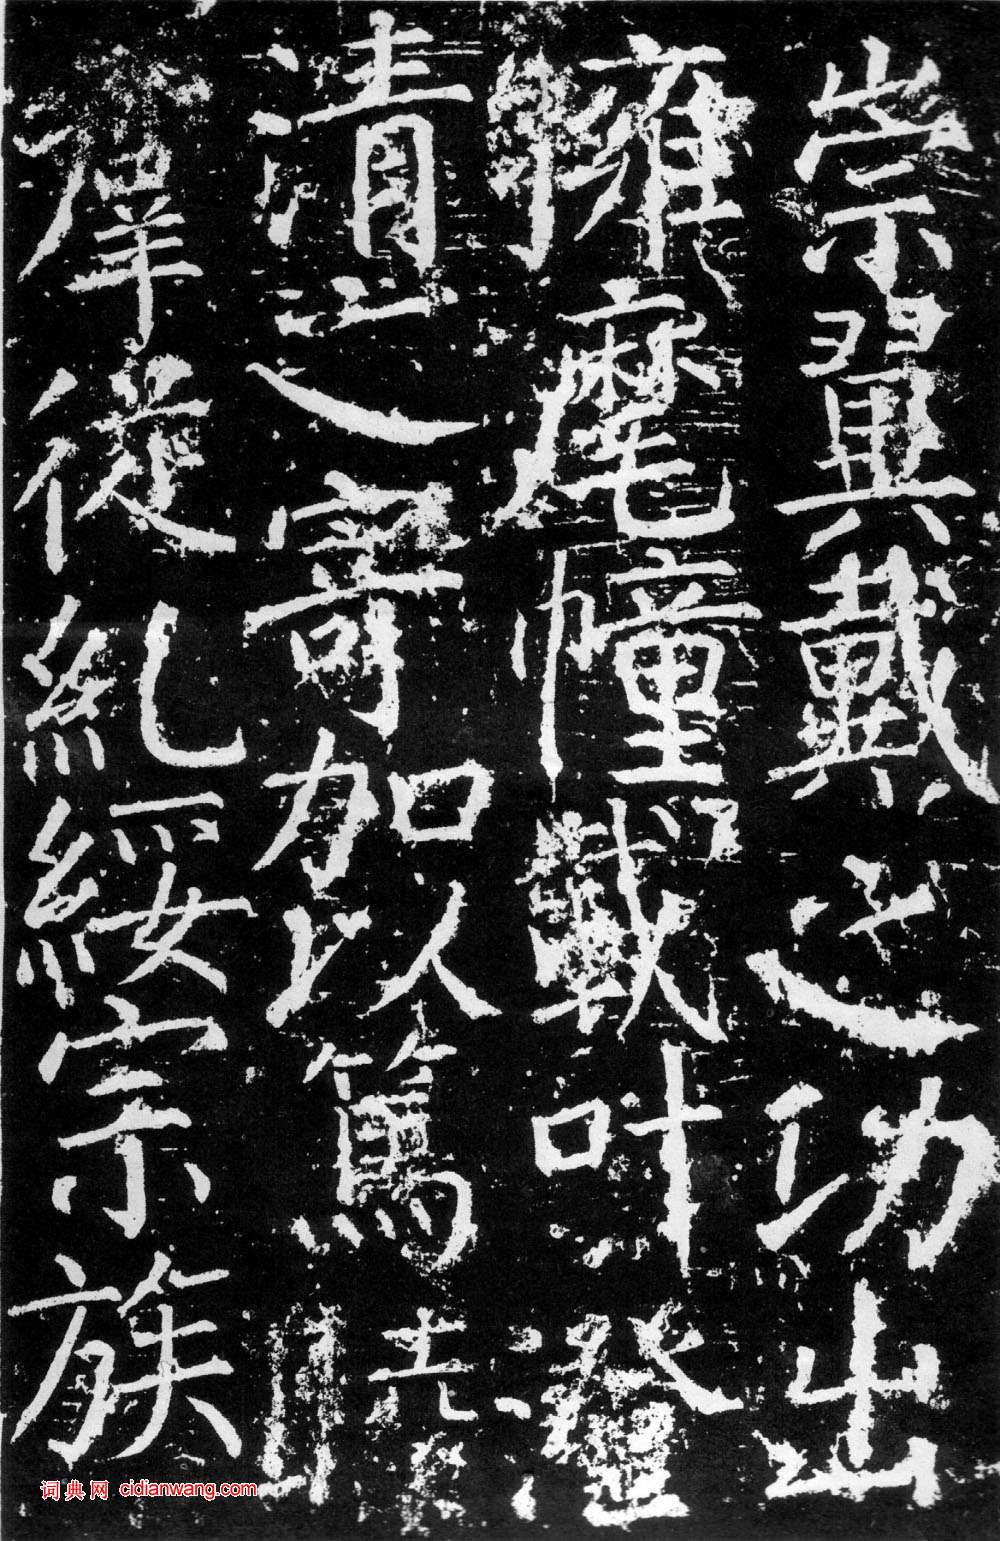 崇翼戴之功出
擁麾幢載叶澄
清之寄加以篤
羣從糺綏宗族
词典网 cidianwang.com